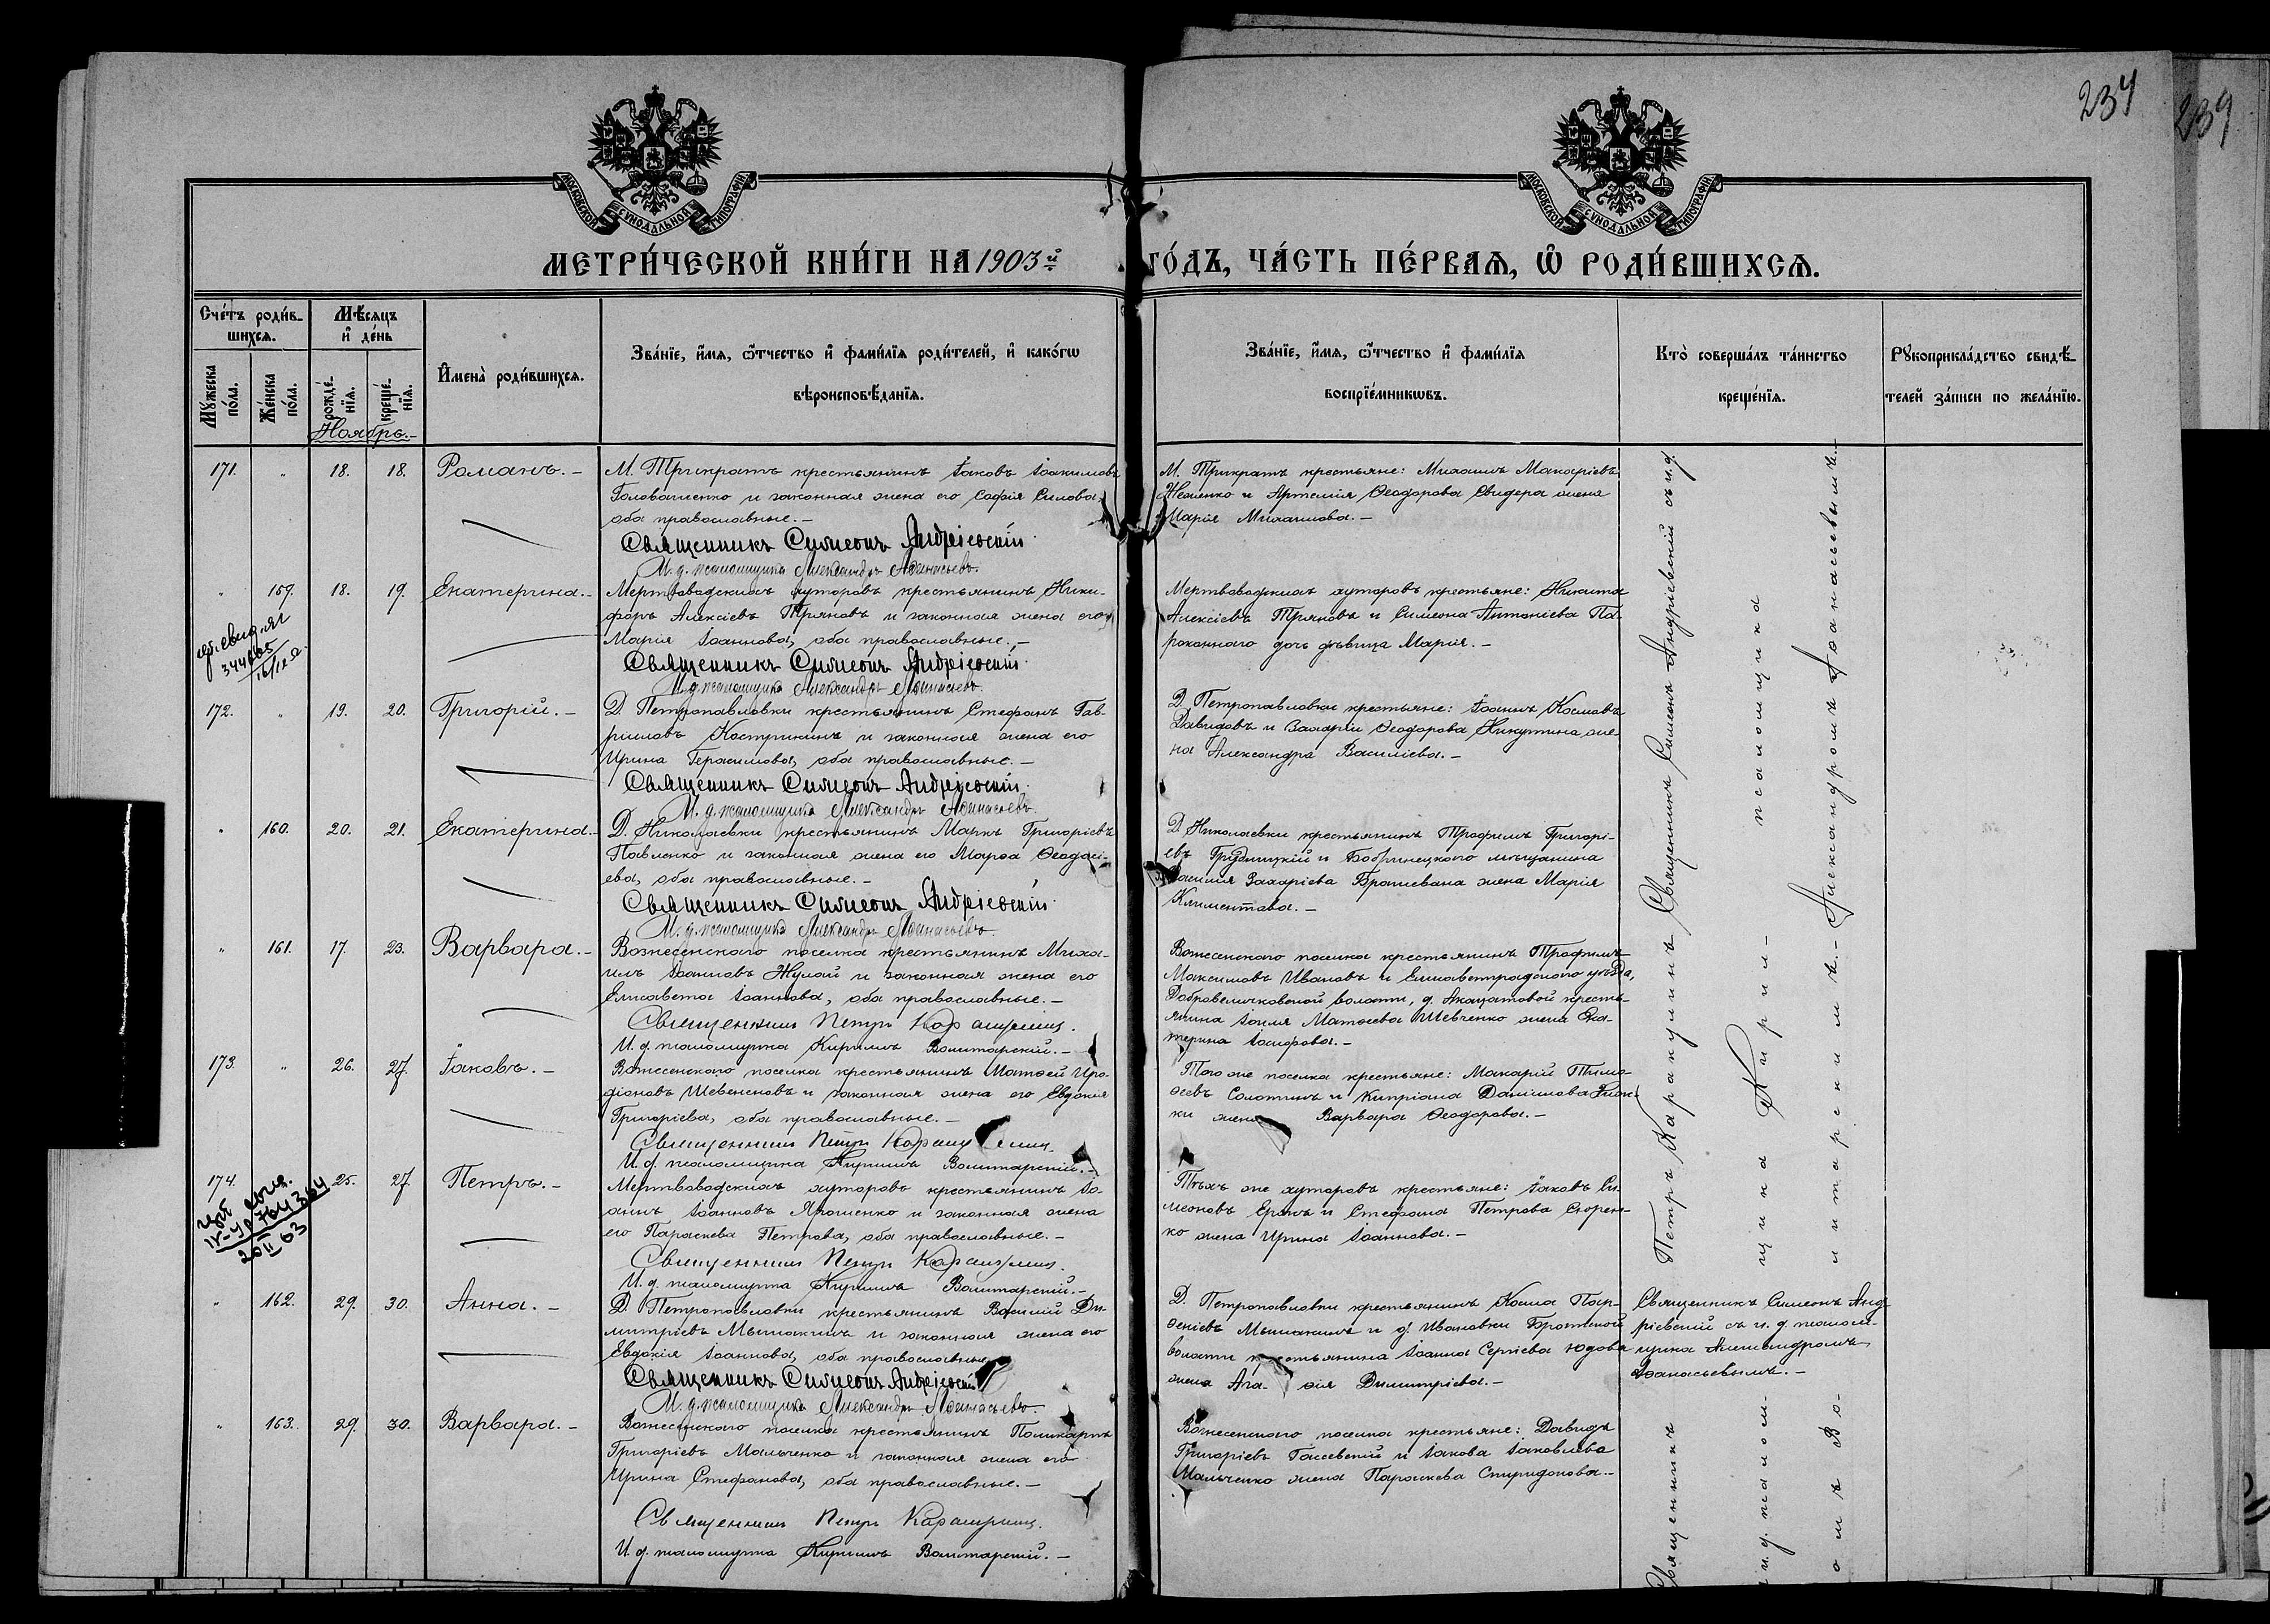 234
239
МОСКОВСКОЙ СѴНОДАЛЬНОЙ ТИПОГРАФІИ
МОСКОВСКОЙ СѴНОДАЛЬНОЙ ТИПОГРАФІИ
МЕТРИ́ЧЕСКОЙ КНИ́ГИ НА 1903й ГО́ДЪ, ЧА́СТЬ ПЕ́РВАѦ, Ѡ҆ РОДИ́ВШИХСѦ.
Сче́тъ роди́в-
шихсѧ.
Мꙋ́жеска по́ла.
Же́нска по́ла.
Мѣ́сѧцъ и҆ де́нь
рожде́-нїѧ.
креще́-нїѧ.
И҆мена̀ роди́вшихсѧ.
Зва́нїе, и҆́мѧ, ѻ҆́тчество и҆ фами́лїѧ роди́телей, и҆ како́гѡ
вѣроисповѣ́данїѧ.
Зва́нїе, и҆́мѧ, ѻ҆́тчество и҆ фами́лїѧ
воспрїе́мникѡвъ.
Кто̀ соверша́лъ та́инство
креще́нїѧ.
Рꙋкоприкла́дство свидѣ́-
телей за́писи по жела́нїю.
Ноябрь.-
171. " 18. 18. Романъ.-
М. Трикратъ крестьянинъ Іаковъ Іоакимовъ
Головатенко и законная жена его Софія Силова,
оба православные.-
Священникъ Симеонъ Андріевскій.
И. д. псаломщика Александръ Аѳанасьевъ.
М. Трикратъ крестьяне: Михаилъ Макаріевъ
и Артемія Ѳеодорова Свидера жена
Марія Михаилова.-
" 159. 18. 19. Екатерина.-
344605
Мертвоводскихъ хуторовъ крестьянинъ Ники-
форъ Алексіевъ Тряновъ и законная жена его
Марія Іоаннова, оба православные.-
Священникъ Симеонъ Андріевскій.
И. д. псаломщика Александръ Аѳанасьевъ.
Мертвоводскихъ хуторовъ крестьяне: Никита
Алексіевъ Тряновъ и Симеона Антоніева Па-
роконного дочь дѣвица Марія.-
172. " 19. 20. Григорій.-
Д. Петропавловки крестьянинъ Стефанъ Гав-
риловъ Кострикинъ и законная жена его
Ирина Герасимова, оба православные.-
Священникъ Симеонъ Андріевскій.
И. д. псаломщика Александръ Аѳанасьевъ.
Д. Петропавловки крестьяне: Іоаннъ Космовъ
Давидовъ и Захарія Ѳеодорова Никутина же-
на Александра Василіева.-
" 160. 20. 21. Екатерина.-
Д. Николаевки крестьянинъ Маркъ Григоріевъ
Павленко и законная жена его Марѳа Ѳеодосі-
ева, оба православные.-
Священникъ Симеонъ Андріевскій.
И. д. псаломщика Александръ Аѳанасьевъ.
Д. Николаевки крестьянинъ Трофимъ Григорі-
евъ Грудницкій и Бобринецкого мѣщанина
Василія Захаріева Братевана жена Марія
Климентова.-
" 161. 17. 23. Варвара.-
Вознесенского поселка крестьянинъ Миха-
илъ Іоанновъ Жулай и законная жена его
Елисавета Іоаннова, оба православные.-
Священникъ Петръ Каракулинъ.
И. д. псаломщика Кириллъ Волитарскій.-
Вознесенского поселка крестьянинъ Трофимъ
Максимовъ Ивановъ и Елисаветградского уѣзда,
Добровеличковской волости, д. Акацатовой кресть-
янина Іоиля Матѳеева Шевченко жена Ека-
терина Іосифова.-
173. " 26. 27. Іаковъ.-
Вознесенского поселка крестьянинъ Матѳей Иро-
діоновъ и законная жена его Евдокія
Григоріева, оба православные.-
Священникъ Петръ Каракулинъ.
И. д. псаломщика Кириллъ Волитарскій.-
Того же поселка крестьяне: Макарій Тимо-
ѳеевъ Солотинъ и Кипріана Даніилова
ки жена Варвара Ѳеодорова.-
174. " 25. 27. Петръ.-
764364
20 II 63
Мертвоводскихъ хуторовъ крестьянинъ Іо-
аннъ Іоанновъ Ярошенко и законная жена
его Параскева Петрова, оба православные.-
Священникъ Петръ Каракулинъ.
И. д. псаломщика Кириллъ Волитарскій.-
Тѣхъ же хуторовъ крестьяне: Іаковъ Си-
меоновъ и Стефана Петрова Скорен-
ко жена Ирина Іоаннова.-
" 162. 29. 30. Анна.-
Д. Петропавловки крестьянинъ Василій Ди-
митріевъ Мышакинъ и законная жена его
Евдокія Іоаннова, оба православные.
Священникъ Симеонъ Андріевскій
И. д. псаломщика Александръ Аѳанасьевъ.
Д. Петропавловки крестьянинъ Косма Пар-
ѳеніевъ Мышакинъ и д. Ивановки
волости крестьянина Іоанна Сергіева Юдова
жена Ага-ѳія Димитріева.-
Священникъ Симеонъ Анд-
ріевскій съ и. д. псалом-
щика Александромъ
Аѳанасьевымъ.-
" 163. 29. 30. Варвара.-
Вознесенского поселка крестьянинъ Поликарпъ
Григоріевъ Мальченко и законная жена его
Ирина Стефанова, оба православные.-
Священникъ Петръ Каракулинъ.
И. д. псаломщика Кириллъ Волитарскій.-
Вознесенского поселка крестьяне: Давидъ
Григоріевъ Гассевскій и Іакова Іаковлева
Мальченко жена Параскева Спиридонова.-
Священникъ Симеонъ Андріевскій съ и. д.
псаломщика
Александромъ Аѳанасьевымъ.-
Священникъ Петръ Каракулинъ
съ и. д. псаломщика Кирил-
ломъ Волитарскимъ.-